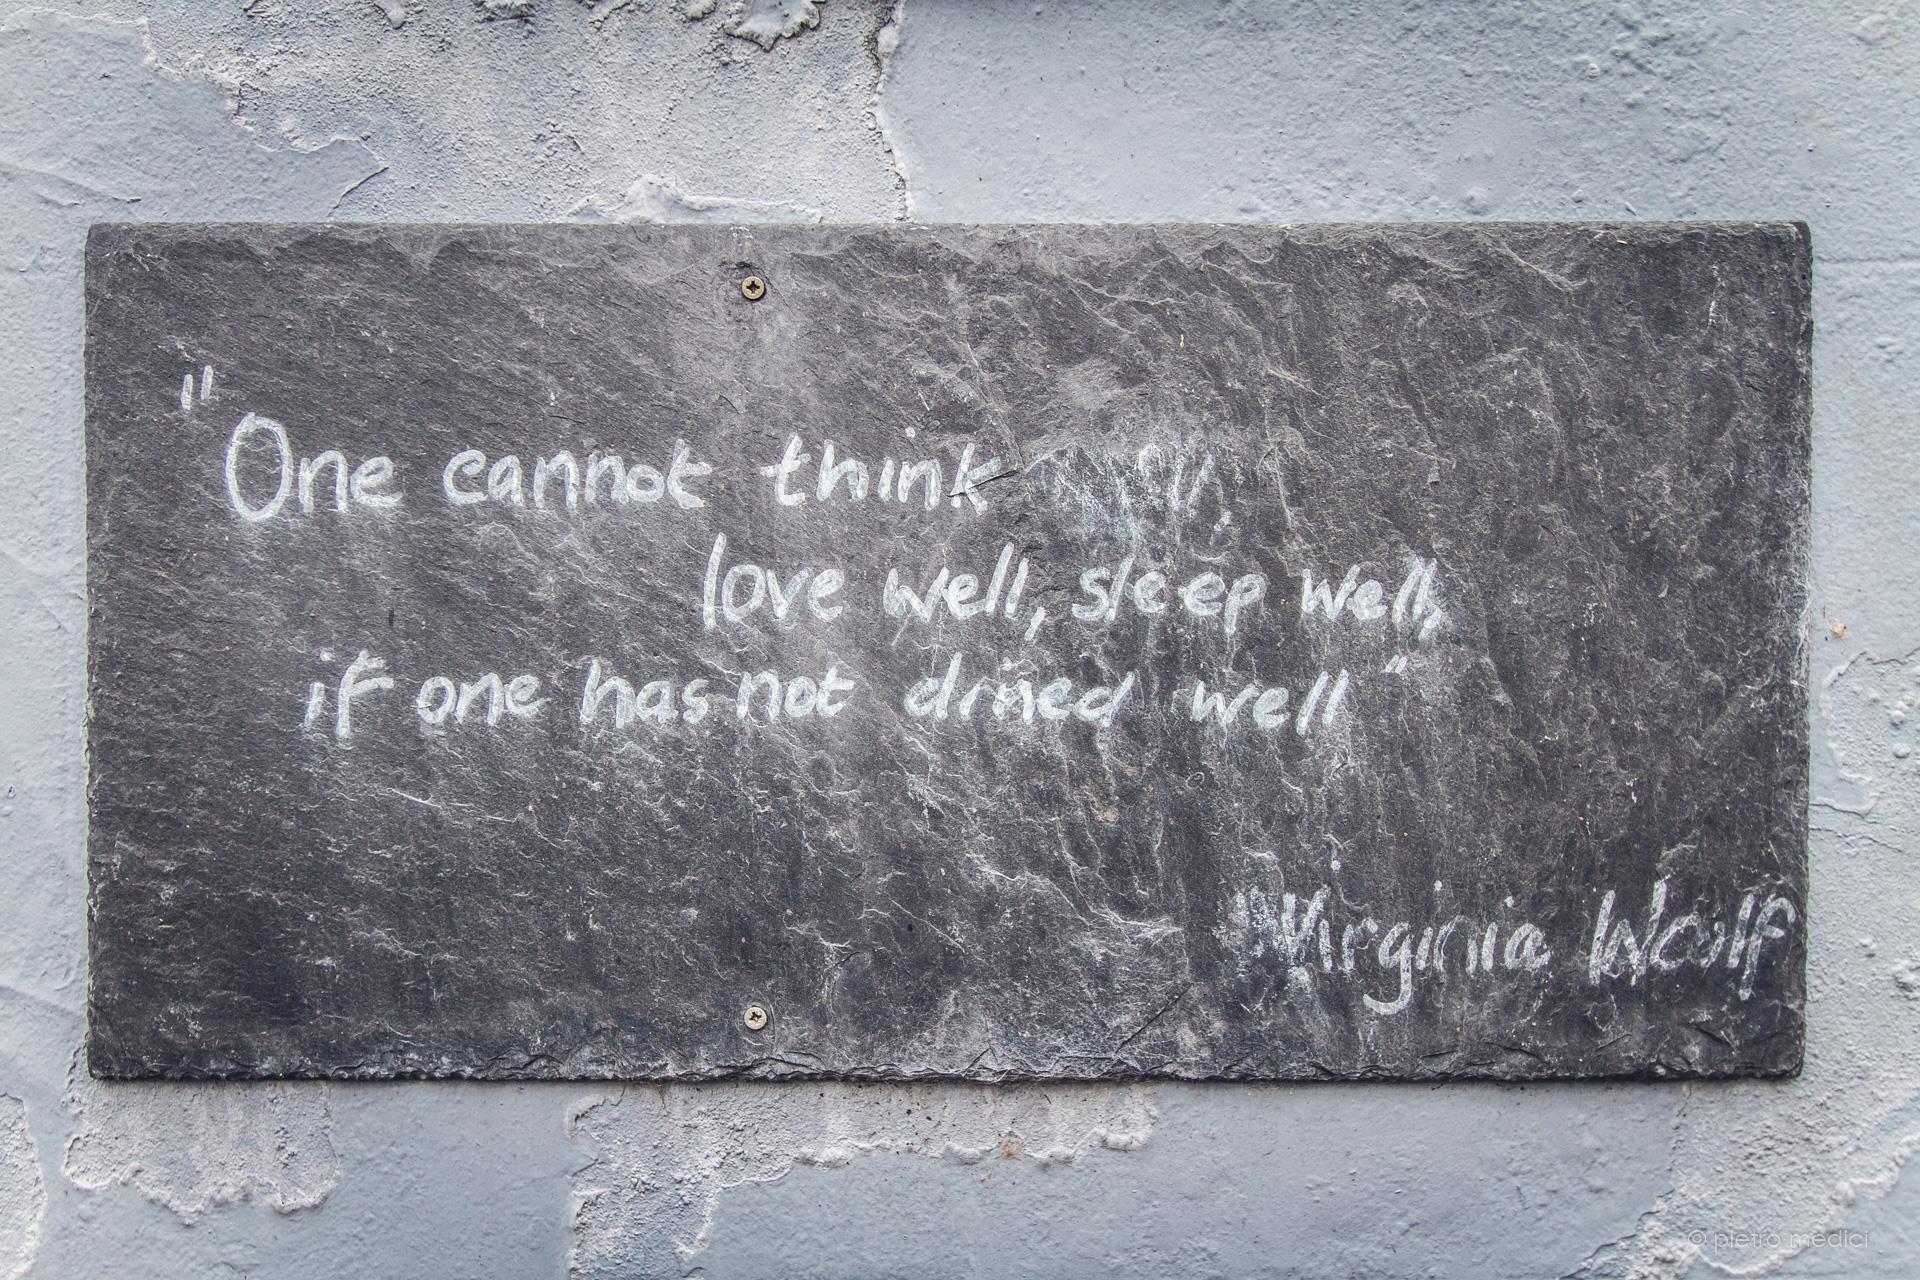 "One cannot think
love well, sleep well,
if one has not dined well"
Virginia Woolf
© pietro medici